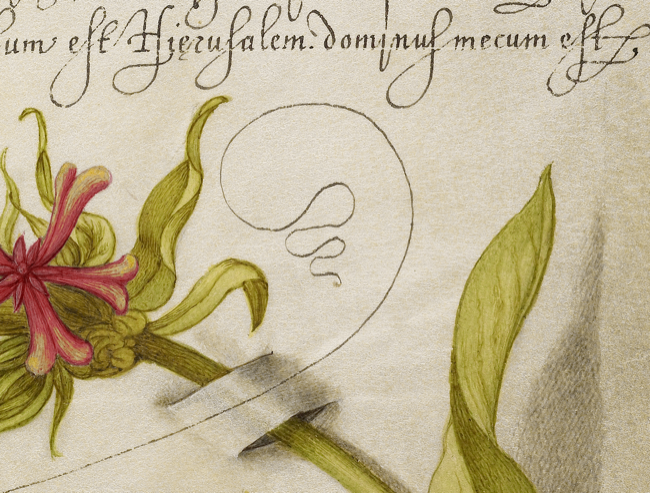 um est Hierusalem. dominus mecum est